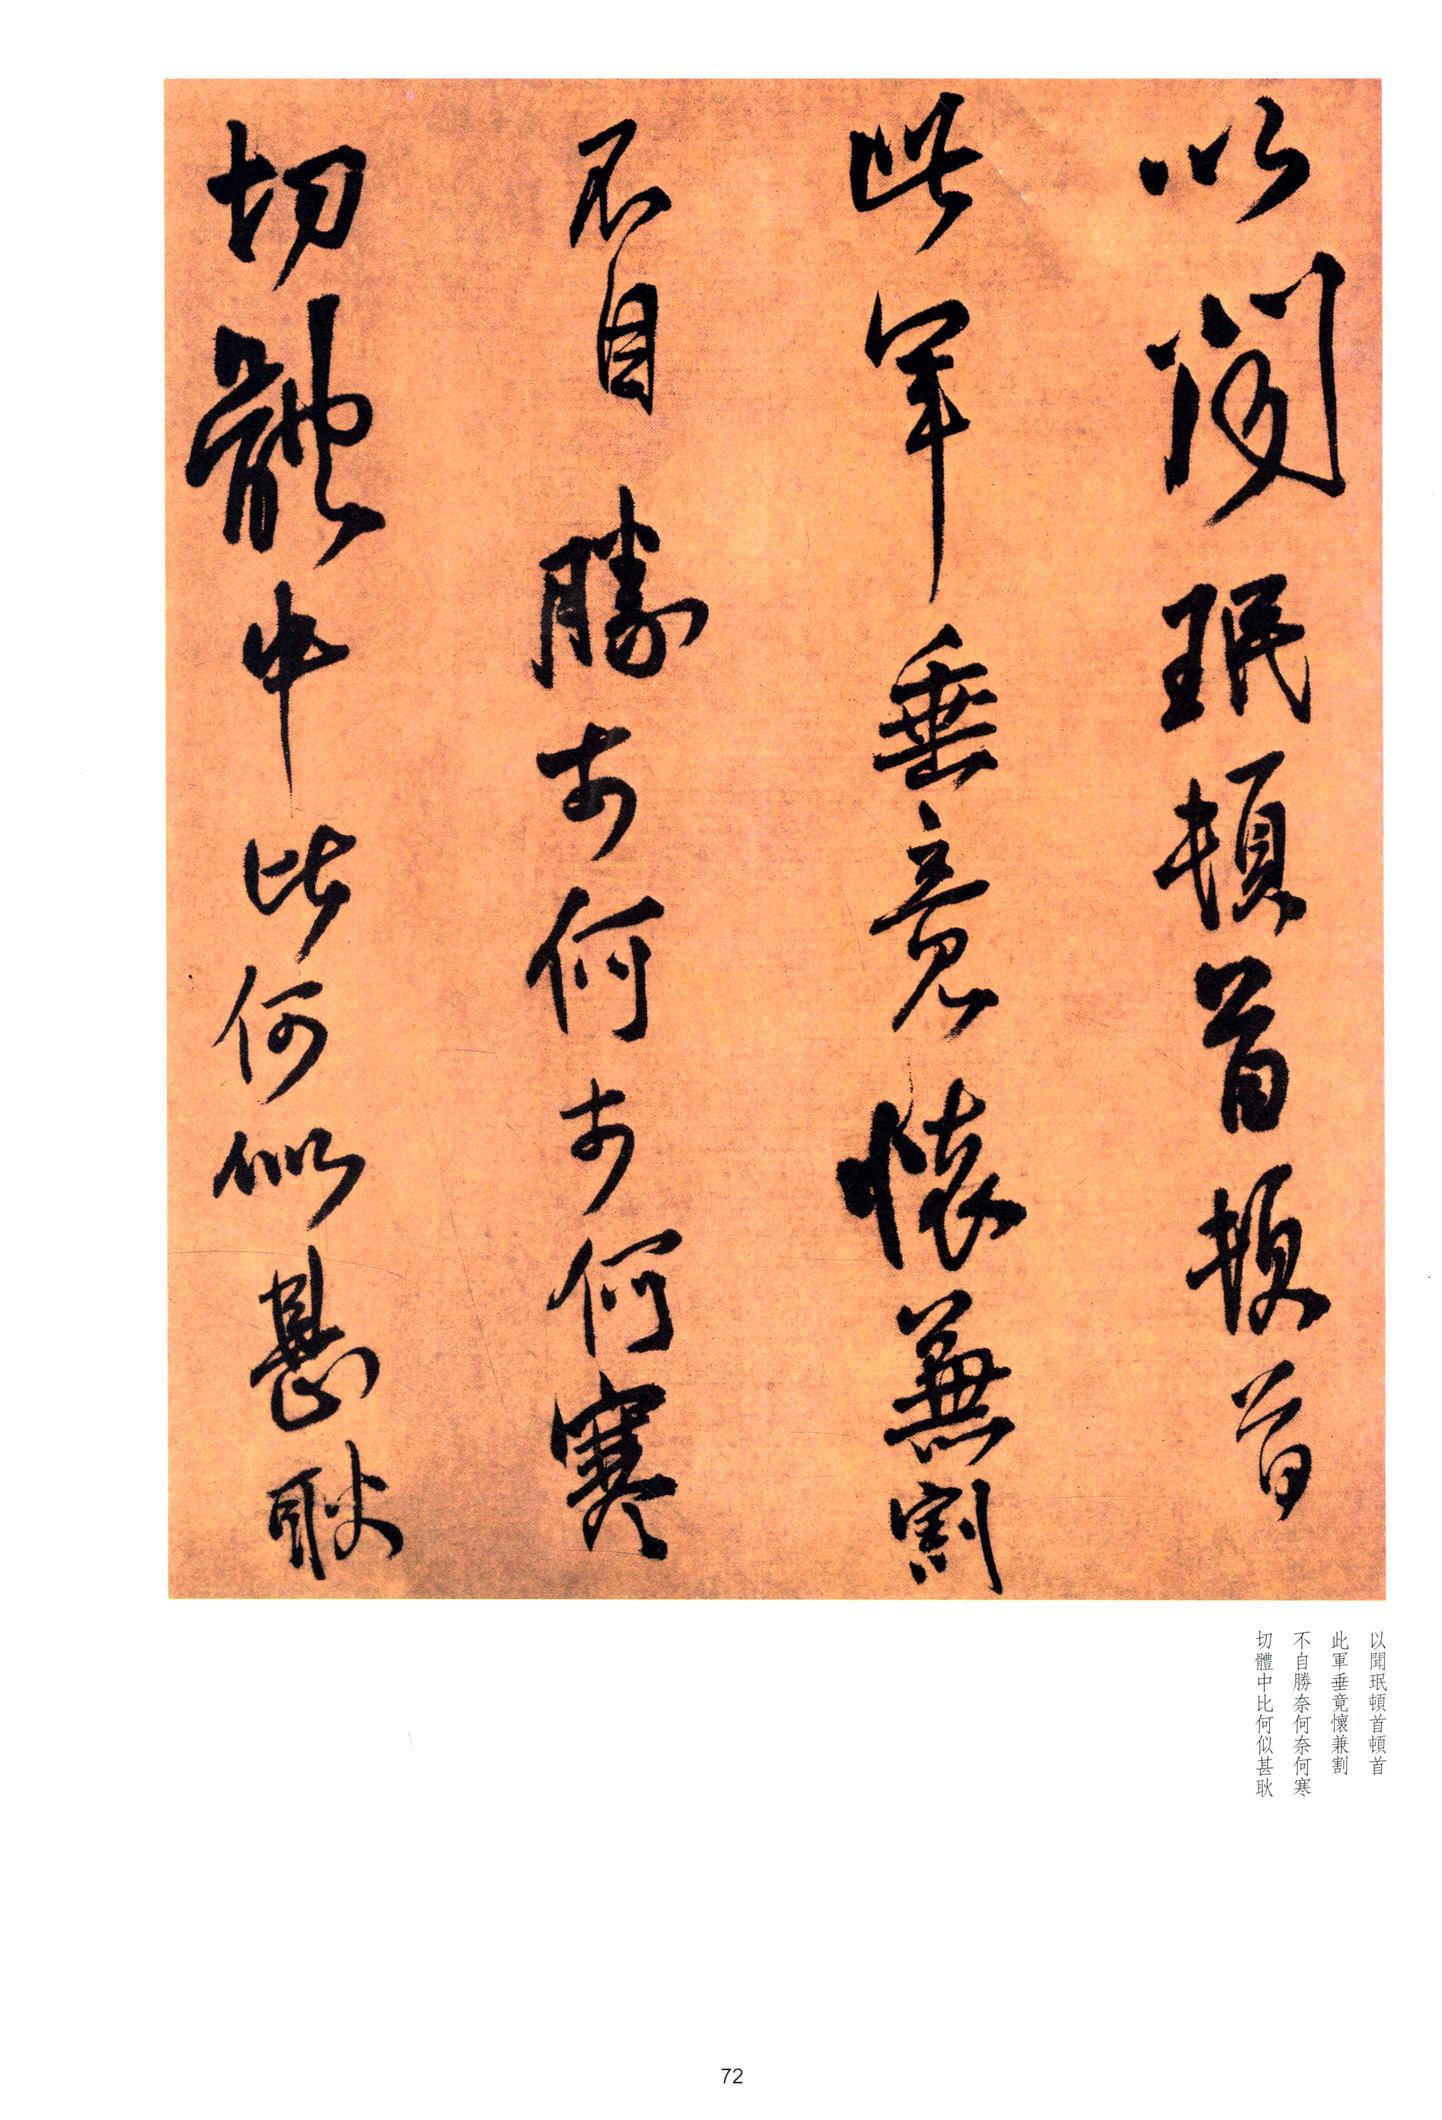 以閒珉頓首頓首
此軍垂竟懷兼割
不自勝奈何奈何寒
切體中比何似甚耿
以聞珉頓首頓首
此軍垂竟懷兼割
不自勝奈何奈何寒
切體中比何似甚耿
72